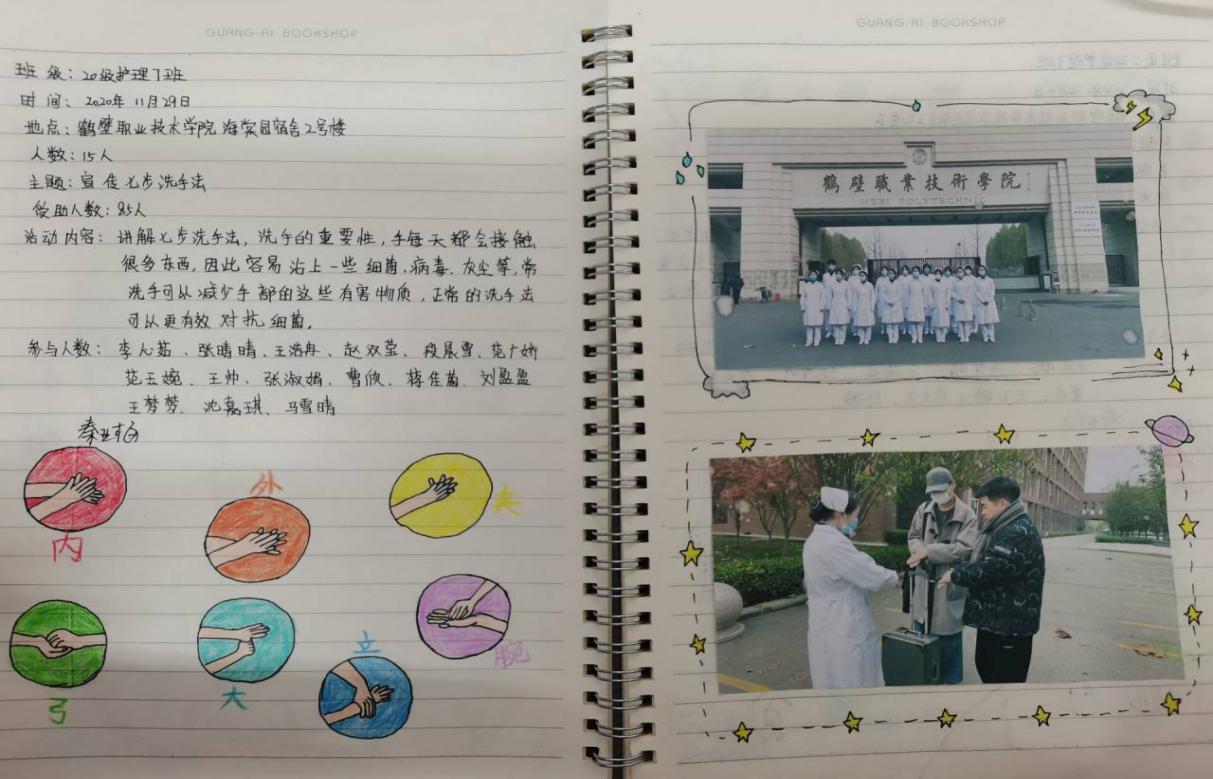 GUANG-AI BOOKSHOP
班级：20级护理7班
时间：2020年11月29日
地点：鹤壁职业技术学院海棠园宿舍2号楼
人数：15人
主题：宣传七步洗手法
受助人数：85人
活动内容：讲解七步洗手法，洗手的重要性，手每天都会接触
很多东西，因此容易沾上一些细菌、病毒、灰尘等，常
洗手可以减少手部的这些有害物质，正常的洗手法
可以更有效对抗细菌。
参与人数：李心茹、张晴晴、王浩冉、赵双莹、段晨雪、范广娇
范玉婉、王帅、张淑娟、曹欣、蒋佳苗、刘盈盈
王梦梦、沈嘉琪、马雪晴
内
外
夹
弓
大
立
腕
GUANG-AI BOOKSHOP
鶴壁職業技術學院
HEBI POLYTECHNIC